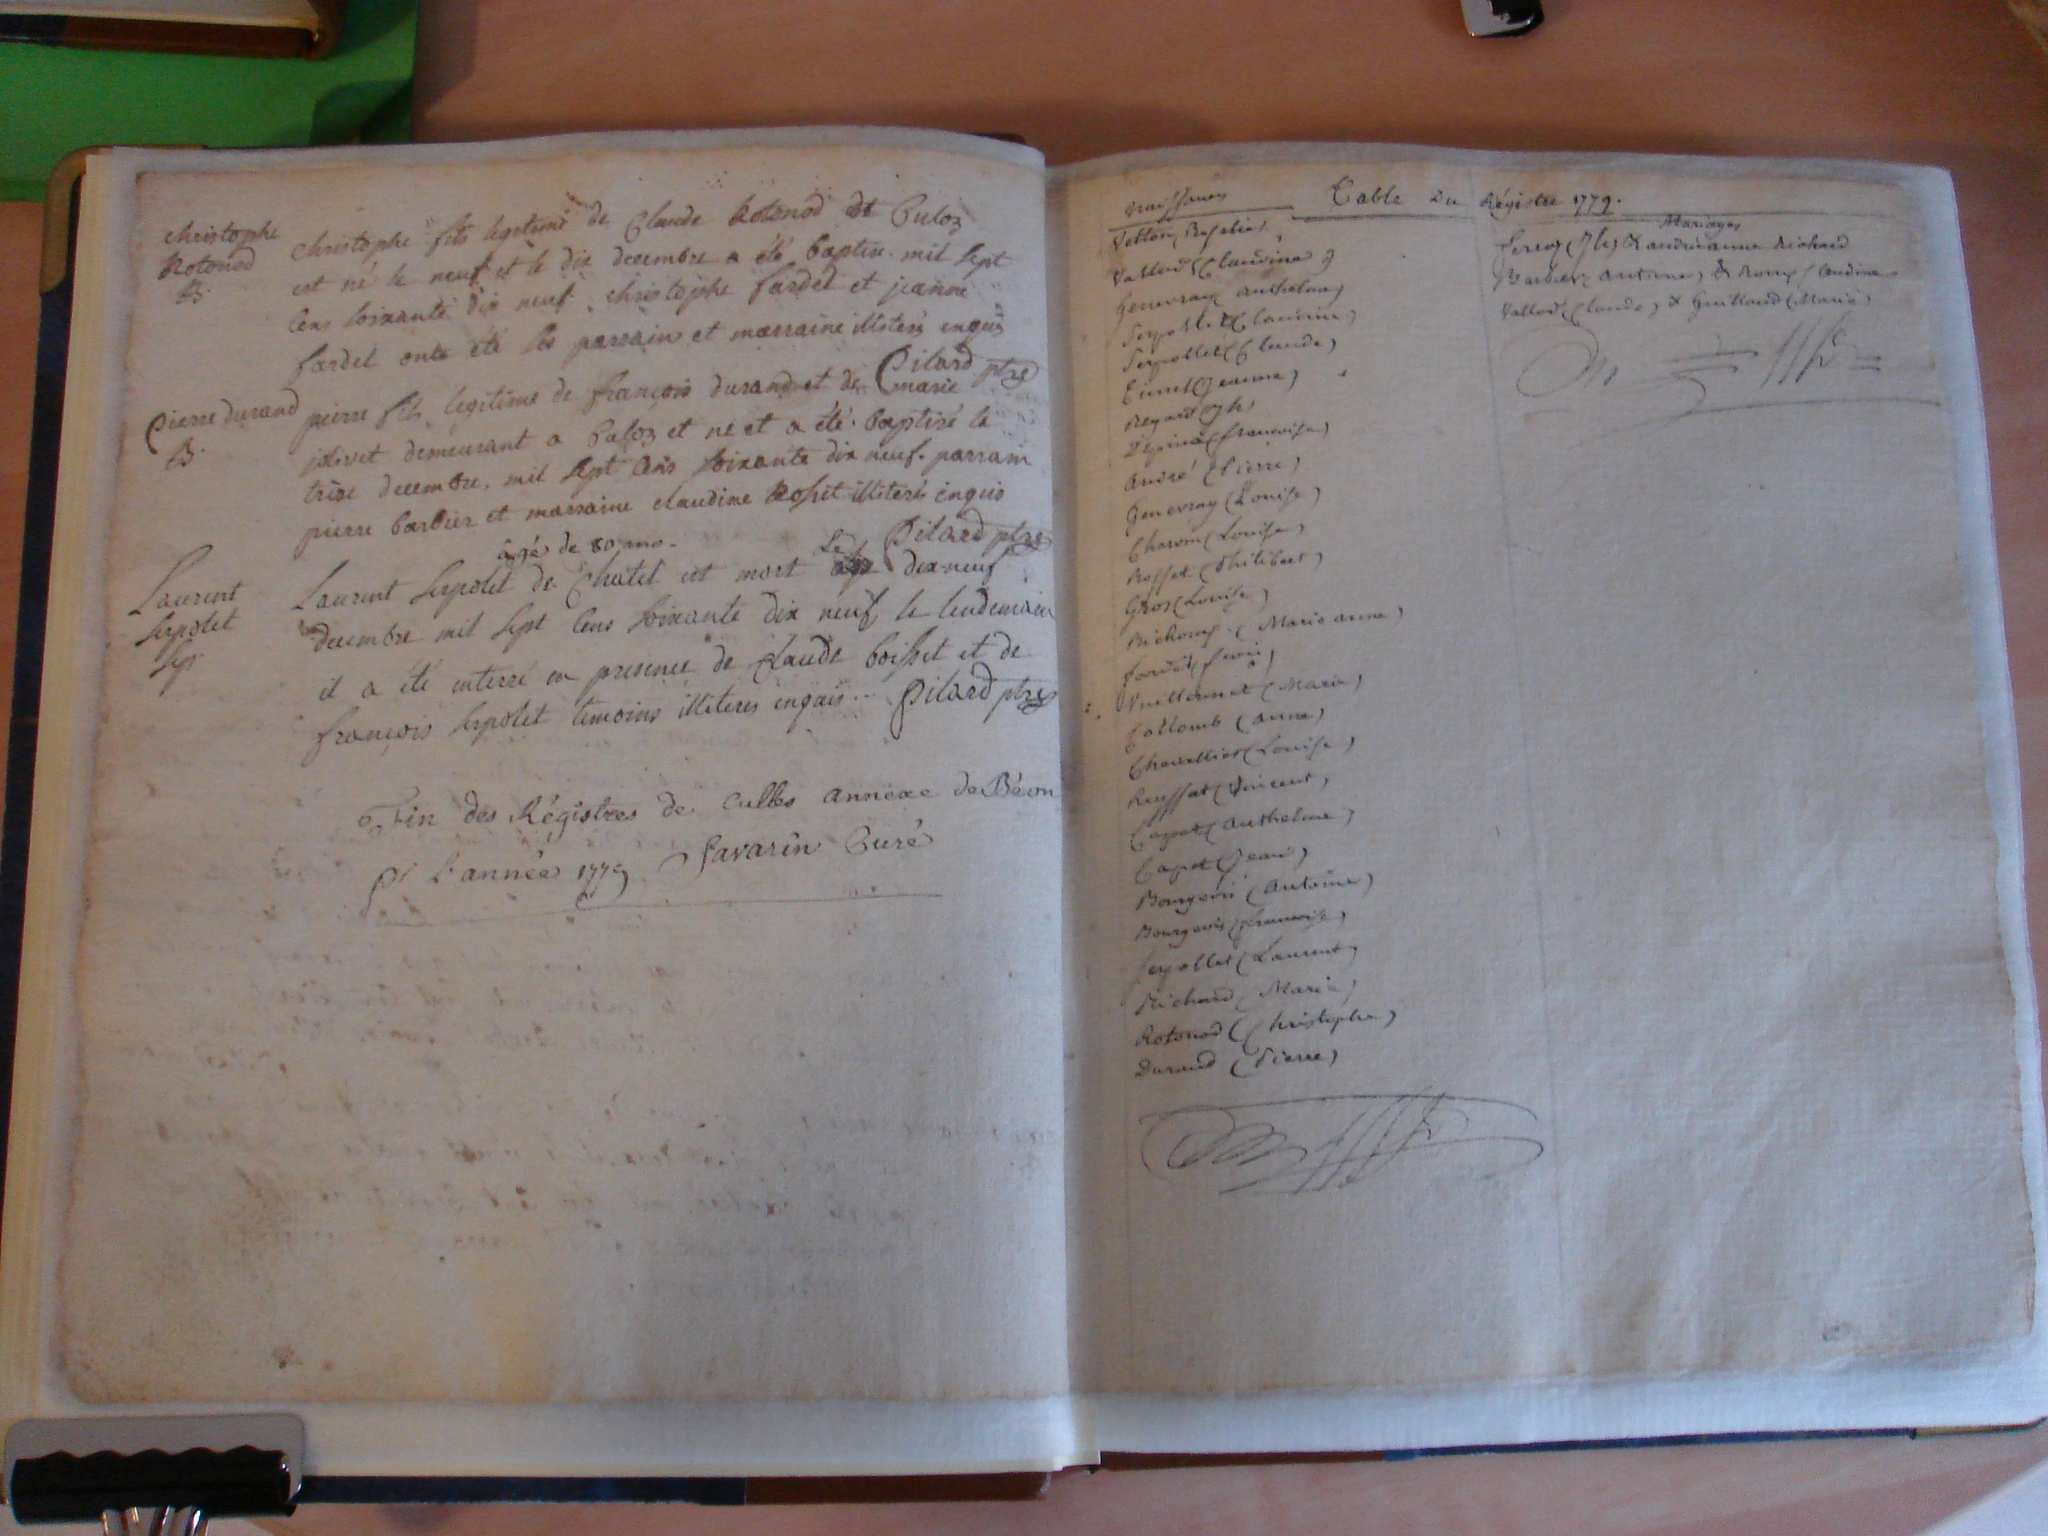 christophe
Rotonod
B.
christophe fils legitime de Claude Rotonod de Culoz
est né le neuf et le dix decembre a été baptise mil sept
cens soixante dix neuf christophe fardel et jeanne
fardel onts été les parrain et marraine illiterés enquis
Pilard ptre
Pierre durand
B.
pierre fils legitime de françois durand et de marie
jolivet demeurant a Culoz et né et a été baptisé le
trize decembre mil sept cens soixante dix neuf. parrain
pierre barbier et marraine claudine Rosset illiterés enquis
Pilard ptre
âgé de 80 ans
Laurent
Serpolet
sep.
Laurent Serpolet de Chatel est mort Le dix neuf
decembre mil sept cens soixante dix neuf le lendemain
il a été enterré en presence de Claude boisset et de
françois Serpolet temoins illiterés enquis Pilard ptre
Fin des Régistres de Culles annexe de Béon
Pr L'année 1779 Savarin Curé
Table Du Régistre 1779.
Naissances
Vallod (Claudine)
Genevray anthelme
Serpollet (Claudine)
Serpollet (Claude)
(Jeanne)
Reyard (Jh)
(françoise)
André (Pierre)
Genevray (Louise)
Charvin (Louise)
Rosset (Philibert)
Gros (Louise)
(Marie anne)
Vuillermet (Marie)
Collomb (anne)
Chevallier (Louise)
(Vincent)
Capot (Anthelme)
Capot (Jean)
Bourgeois (Antoine)
Bourgeois (françoise)
Serpollet (Laurent)
Richard (Marie)
Rotonod (Christophe)
Durand (Pierre)
Mariages
(Jh) & andréanne Richard
Barbier antoine, & Claudine
Vallod (Claude) & Guilloud (Marie)